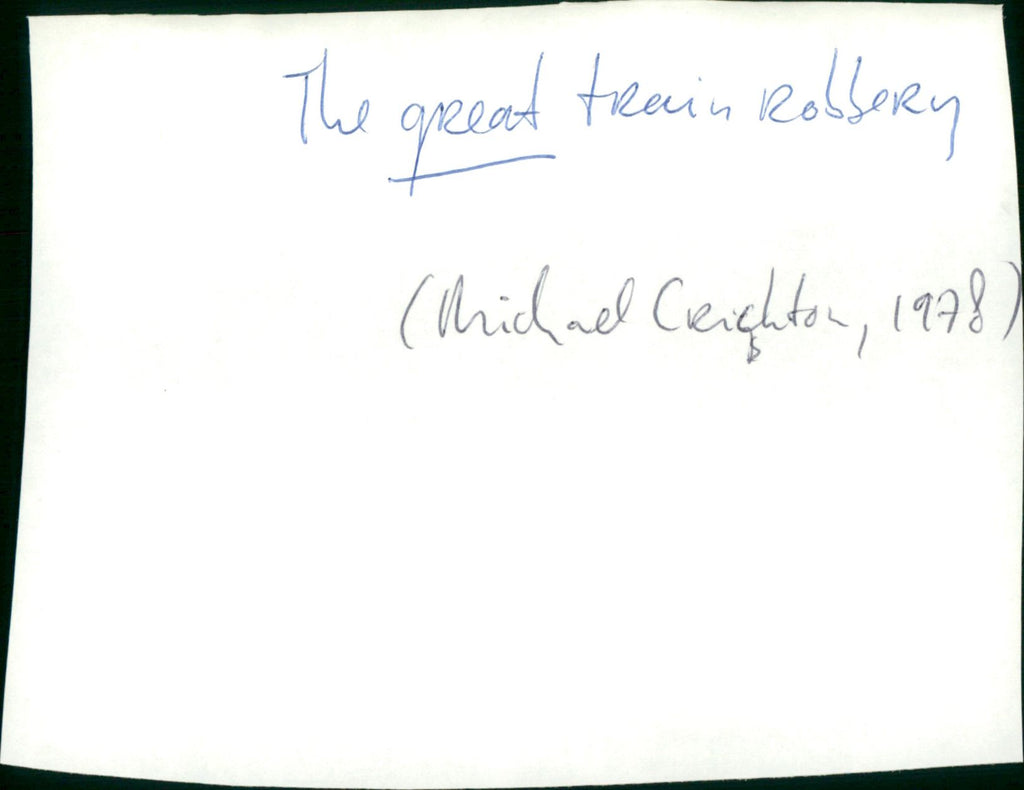 The great train robbery
(Michael Crighton, 1978)